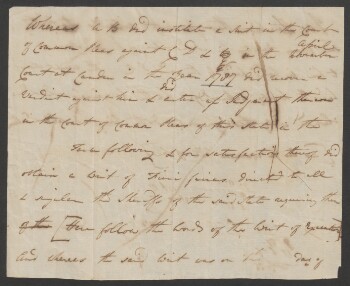 Whereas A B did institute a Suit in the Court
of Common Pleas against C D & in the
april
Court at Camden in the year 1787 did recover a
did
Verdict against him & enter up Judgment thereon
in the Court of Common Pleas of this State in the
Form following & for satisfaction thereof did
obtain a Writ of Fieri facias, directed to all
& singular the Sheriffs of the said State requiring them
[Here follow the words of the Writ of Execution]
And whereas the said Writ was on the day of